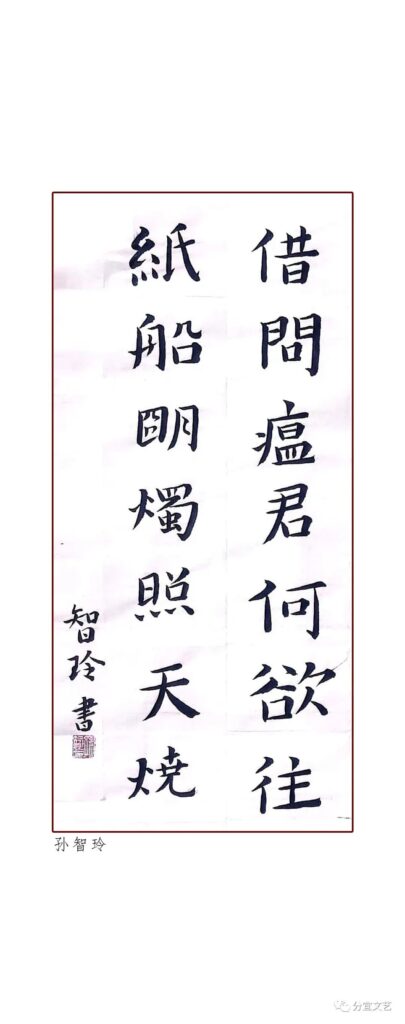 借問瘟君何欲往
紙船明燭照天燒
智玲書
孙智玲
分宜文艺